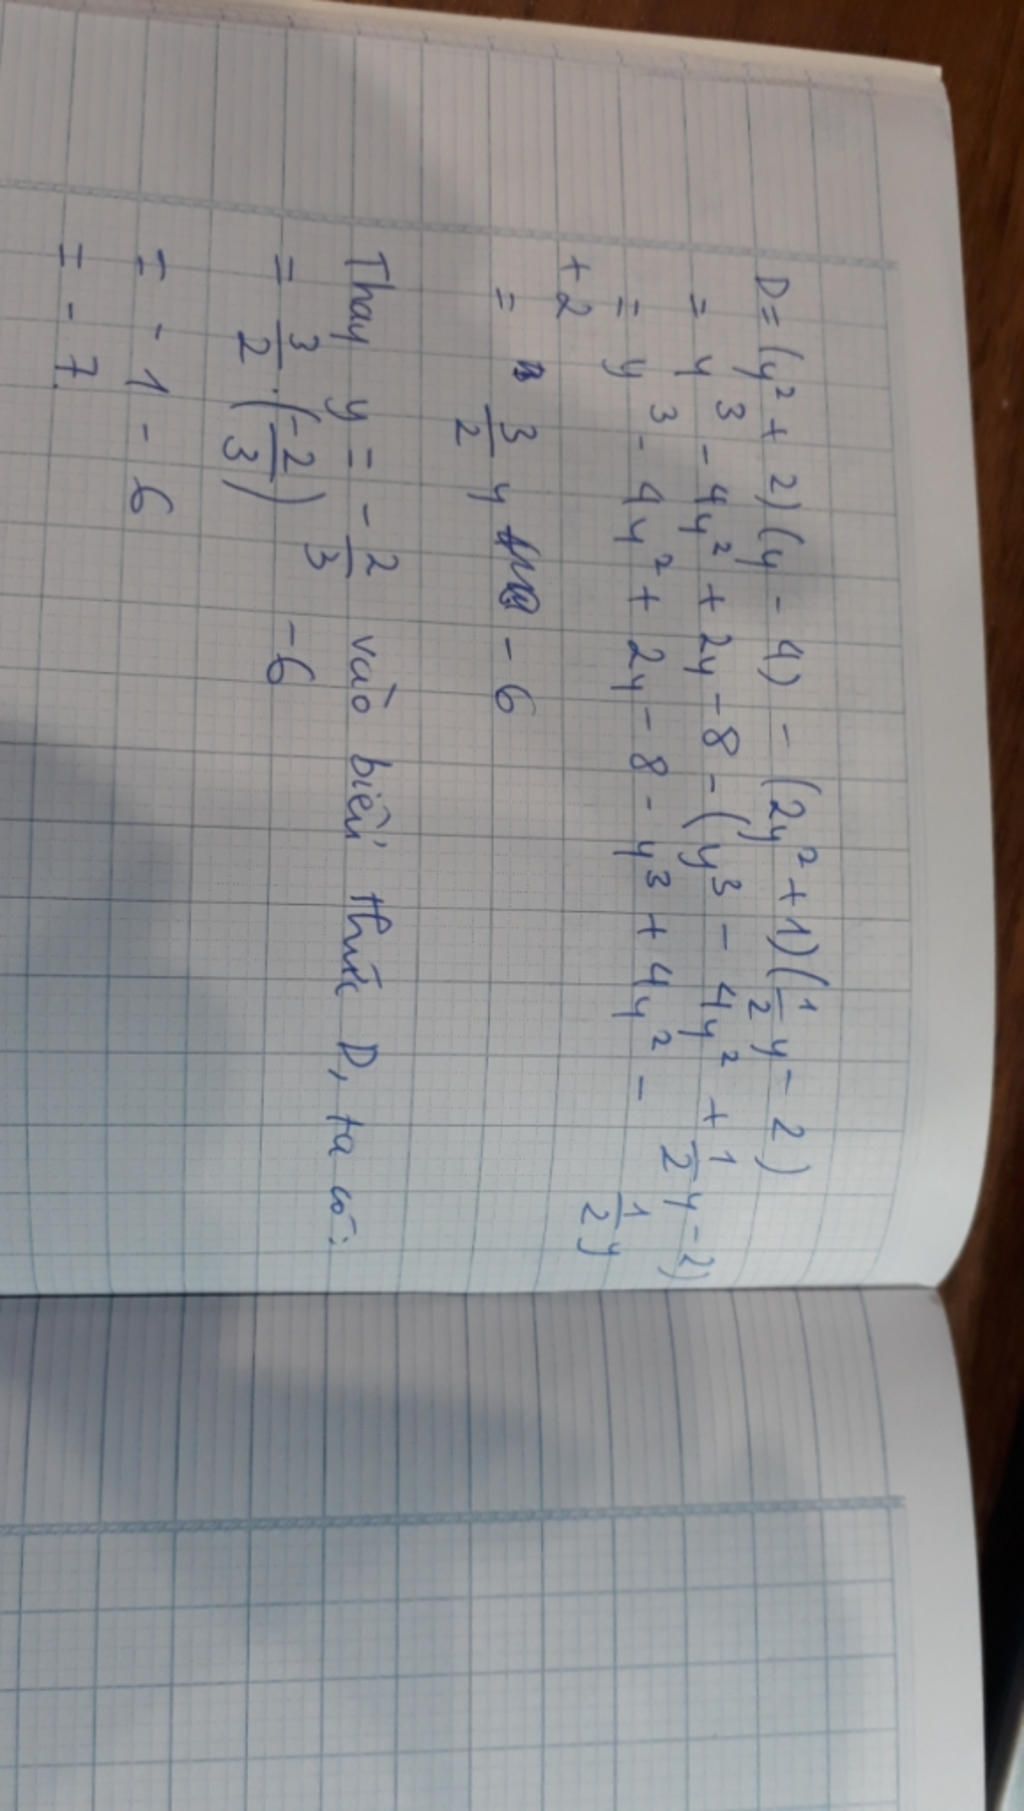 D = (y² + 2)(y - 4) - (2y² + 1)(1/2 y - 2)
= y³ - 4y² + 2y - 8 - (y³ - 4y² + 1/2 y - 2)
= y³ - 4y² + 2y - 8 - y³ + 4y² - 1/2 y
+ 2
= 3/2 y - 6
Thay y = - 2/3 vào biểu thức D, ta có:
= 3/2 . (-2/3) - 6
= - 1 - 6
= - 7.